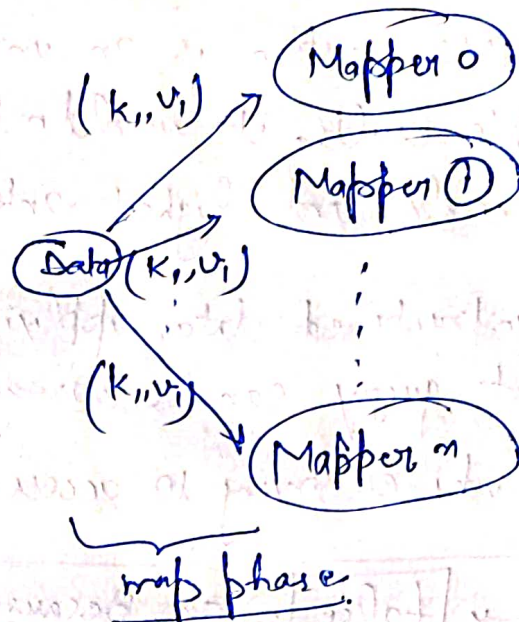 Mapper 0
(k₁, v₁)
Mapper 1
Data
(k₁, v₁)
(k₁, v₁)
Mapper n
map phase.